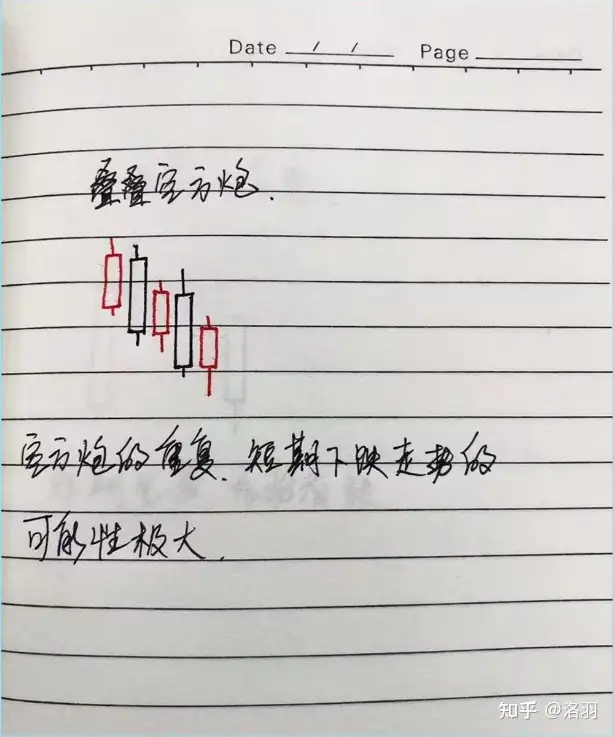 Date / / Page
叠叠空方炮.
空方炮的重复.短期下跌走势的
可能性极大.
知乎 @洛羽